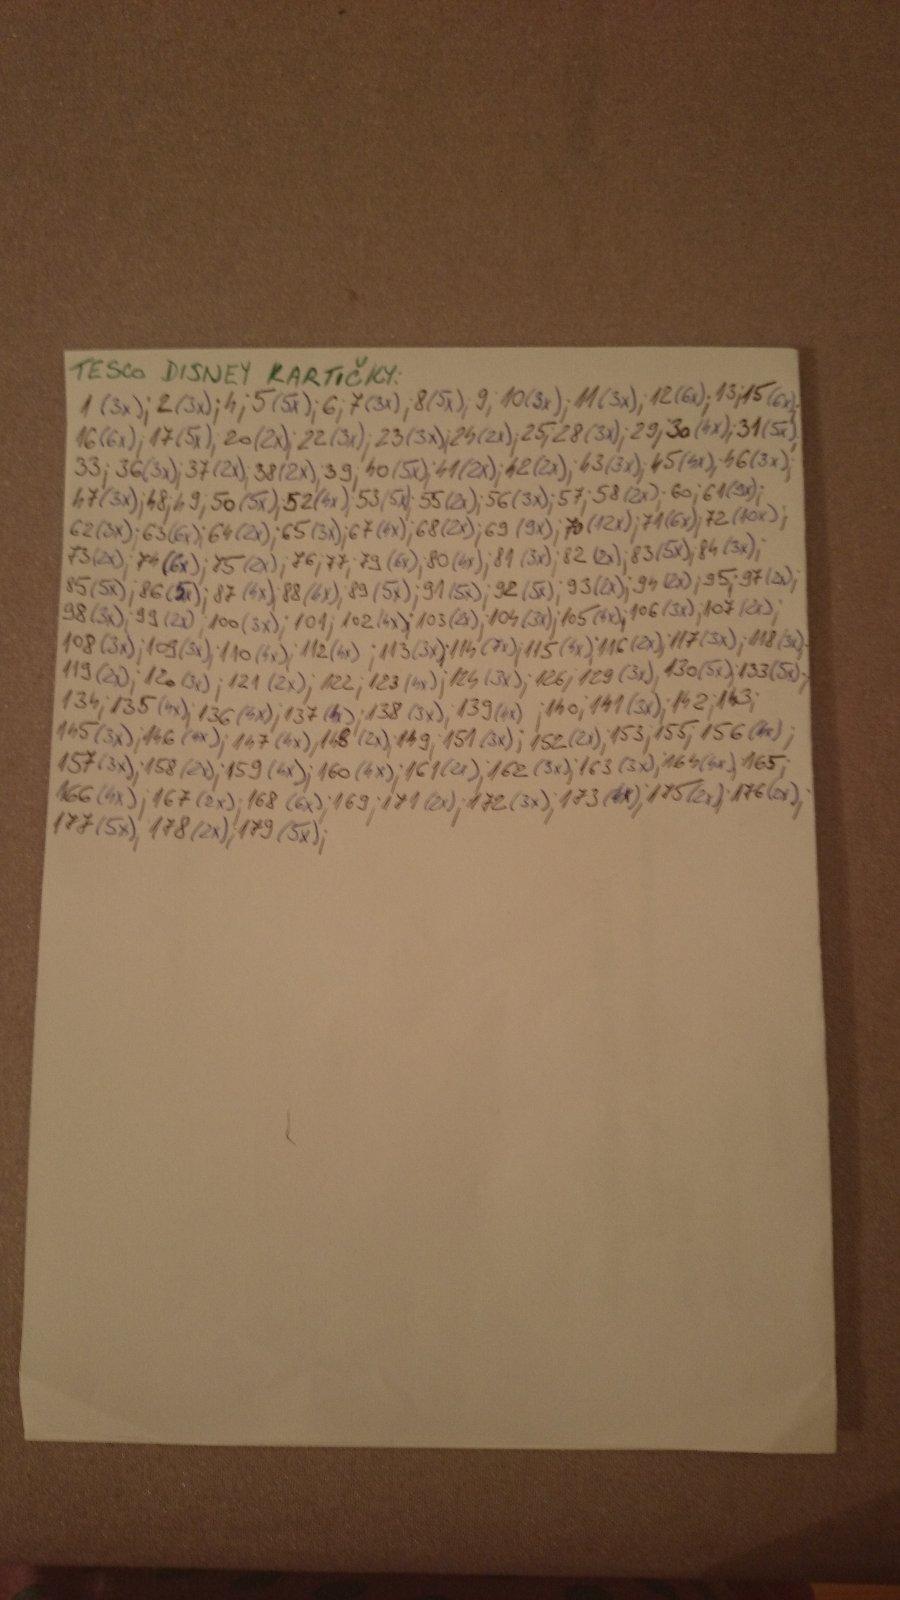 TESCO DISNEY KARTIČKY:
1 (3x); 2 (3x); 4; 5 (5x); 6; 7 (3x); 8 (5x); 9; 10 (3x); 11 (3x); 12 (6x); 13; 15 (6x);
16 (6x); 17 (5x); 20 (2x); 22 (3x); 23 (3x); 24 (2x); 25; 28 (3x); 29; 30 (4x); 31 (5x);
33; 36 (3x); 37 (2x); 38 (2x); 39; 40 (5x); 41 (2x); 42 (2x); 43 (3x); 45 (4x); 46 (3x);
47 (3x); 48; 49; 50 (5x); 52 (4x); 53 (5x); 55 (2x); 56 (3x); 57; 58 (2x); 60; 61 (9x);
62 (3x); 63 (6x); 64 (2x); 65 (3x); 67 (4x); 68 (2x); 69 (9x); 70 (12x); 71 (6x); 72 (10x);
73 (2x); 74 (6x); 75 (2x); 76; 77; 79 (6x); 80 (4x); 81 (3x); 82 (2x); 83 (5x); 84 (3x);
85 (5x); 86 (5x); 87 (4x); 88 (4x); 89 (5x); 91 (5x); 92 (5x); 93 (2x); 94 (2x); 95; 97 (2x);
98 (3x); 99 (2x); 100 (3x); 101; 102 (4x); 103 (2x); 104 (3x); 105 (4x); 106 (3x); 107 (2x);
108 (3x); 109 (3x); 110 (4x); 112 (4x); 113 (3x); 114 (7x); 115 (4x); 116 (2x); 117 (3x); 118 (3x);
119 (2x); 120 (3x); 121 (2x); 122; 123 (4x); 124 (3x); 126; 129 (3x); 130 (5x); 133 (5x);
134; 135 (4x); 136 (4x); 137; 138 (3x); 139 (4x); 140; 141 (3x); 142; 143;
145 (3x); 146 (4x); 147 (4x); 148 (2x); 149; 151 (3x); 152 (2x); 153; 155; 156 (4x);
157 (3x); 158 (2x); 159 (4x); 160 (4x); 161 (2x); 162 (3x); 163 (3x); 164 (4x); 165;
166 (4x); 167 (2x); 168 (6x); 169; 171 (2x); 172 (3x); 173; 175 (2x); 176 (2x);
177 (5x); 178 (2x); 179 (5x);